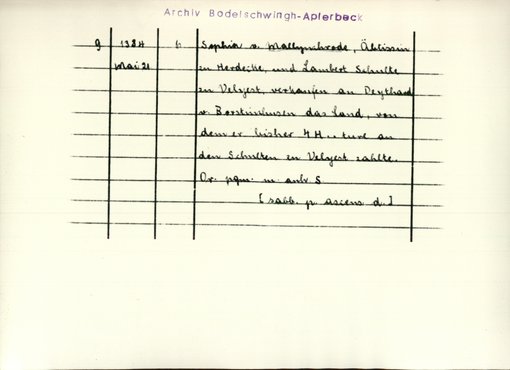 Archiv Bodelschwingh-Apferbeck
9 1384 Sophia v. Wallyncrode, Äbtissin
Mai 21 zu Herdecke, und Lambert Schulte
zu Velyest, verkaufen an Deythard
v. Borstinhusen das Land, von
dem er bisher 4 H... ture an
den Schulten zu Velyest zahlte.
Or. pgm. m. anh. S.
[sabb. p. ascens. d.]